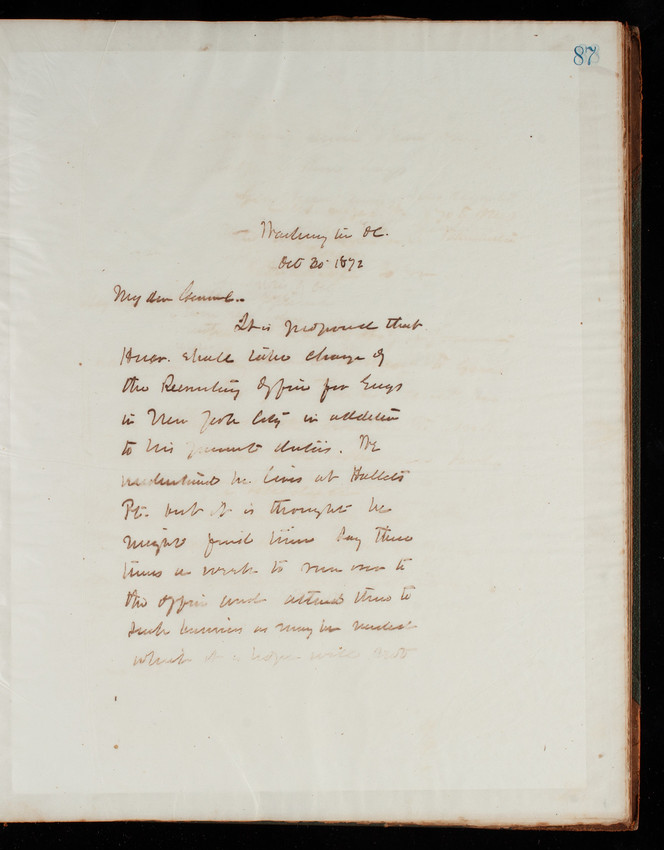 87
Washington DC.
Oct 30 1872
My dear General..
It is proposed that
Heuer. shall take charge of
the Recruiting Office for Engrs
in New York City in addition
to his present duties. We
understand he lives at Halletts
Pt. but it is thought he
might find time say three
times a week to run over to
the office and attend there to
such business as may be needed
which it is hoped will not